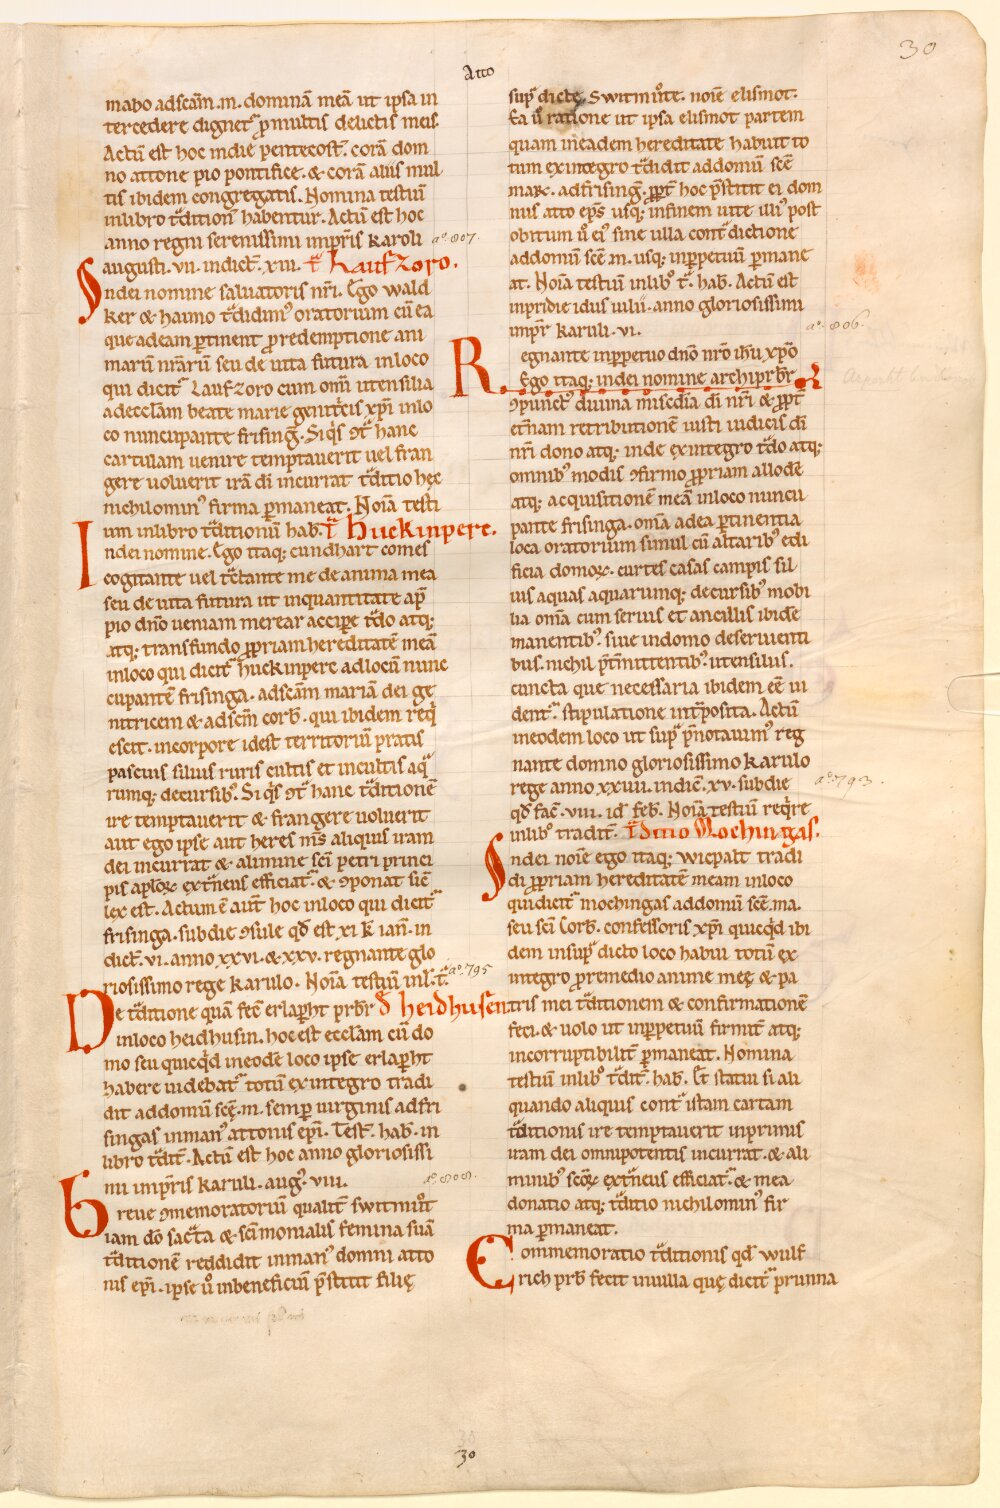 30
Atto
mabo ad scām .m. dominā meā ut ipsa in
tercedere dignet᷑ p multis delictis meis.
Actū est hoc in die pentecost̄. corā dom
no attone pio pontifice. & corā aliis mul
tis ibidem congregatis. Nomina testiū
in libro t᷑dition̄ habentur. Actū est hoc
anno regni serenissimi imp̄ris karoli
a͞o. 807.
augusti. vii. indict̄. xiii. t᷑ Laufzoro.
Indei nomine saluatoris nr̄i. Ego wald
ker & haimo t᷑didim᷒ oratorium cū ea
que ad eam ptinent p redemptione ani
marū nr̄arū seu de uita futura in loco
qui dicit᷑ Laufzoro cum om̄i utensilia
ad ecclam beate marie genit͛cis xp̄i in lo
co nuncupante frisinḡ. Siq͛s ōt᷑ hanc
cartulam uenire temptauerit uel fran
gere uoluerit irā dī incurrat t᷑ditio hęc
nichilomin᷒ firma pmaneat. Noīa testi
um in libro t᷑ditionū hab̄. t᷑ huckinpere.
Indei nomine. Ego itaq; cundhart comes
cogitante uel t᷑ctante me de anima mea
seu de uita futura ut in quantitate ap̄
pio dn̄o ueniam merear accipe t᷑do atq;
atq; transfundo ppriam hereditatē meā
in loco qui dicit᷑ huckinpere ad locū nunc
cupantē frisinga. ad scām mariā dei ge
nitricem & ad scm̄ corb̄. qui ibidem req͛
escit. in corpore id est territoriū pratis
pascuis siluis ruris cultis et incultis aq᷑
rumq; decursib᷒. Siq͛s ōt᷑ hanc t᷑ditionē
ire temptauerit & frangere uoluerit
aut ego ipse aut heres m̄s aliquis iram
dei incurrat & a limine scī petri princi
pis aplōꝝ ext͛neus efficiat᷑. & ꝯponat sic̄
lex est. Actum ē aūt hoc in loco qui dicit᷑
frisinga. sub die ꝯsule qd̄ est xi k̄ ian̄. in
dict̄. vi. anno xxvi. & xxv. regnante glo
riosissimo rege karulo. Noīa testiū in l̄. t᷑.
a͞o. 795
De t᷑ditione quā fec̄ erlapht prb̄r đ heidhusen.
in loco heidhusin. hoc est ecclam cū do
mo seu quicq͛d in eodē loco ipse erlapht
habere uidebat᷑ totū ex integro tradi
dit ad domū scę̄ .m. semp uirginis ad fri
singas in man᷒ attonis epī. Test̄. hab̄. in
libro t᷑dit̄. Actū est hoc anno gloriosissi
mi imp̄ris karuli. aug᷒. viii.
a͞o. 808.
Breue ꝯmemoratoriū qualit̄ switmůt
iam dō sac᷑ta & scīmonialis femina suā
t᷑ditionē reddidit in man᷒ domni atto
nis epī. ipse ů in beneficiū p̄stitit filię
sup͛ dictę Switmůte. noīe elismot.
Ea ů ratione ut ipsa elismot partem
quam in eadem hereditate habuit to
tum ex integro t᷑didit ad domū scē
mar̄. ad frisinḡ. ppt̄ hoc p̄stitit ei dom
nus atto epS̄ usq; in finem uite illi᷒ post
obitum ů ei᷒ sine ulla cont᷑dictione
ad domū scē m. usq; in ppetuū pmane
at. Noīa testiū in lib᷒ t᷑. hab̄. Actū est
in pridie idus iulii. anno gloriosissimi
imp̄r karuli. vi.
a͞o. 806.
Regnante in ppetuo dn̄o nr̄o ih̄u xp̄o
Ego itaq; in dei nomine archiprb̄r
ꝯpunct᷒ diuina misc̄dia dī nr̄i & ppt̄
et̄nam retributionē iusti iudicis dī
nr̄i dono atq; inde ex integro t᷑do atq;
omnib᷒ modis ꝯfirmo ppriam allodē
atq; acquisitionē meā in loco nuncu
pante frisinga. om̄a ad ea ptinentia
loca oratorium simul cū altarib᷒ edi
ficia domoꝝ. curtes casas campis sil
uis aquas aquarumq; decursib᷒ mobi
lia om̄a cum seruis et ancillis ibidē
manentib᷒. siue in domo deseruienti
bus. nichil p̄t͛mittentib᷒. utensilus.
cuncta que necessaria ibidem eē ui
dent᷑. stipulatione int͛posita. Actū
in eodem loco ut sup᷑ p̄notauim᷒ reg
nante domno gloriosissimo karulo
rege anno xxiiii. indic̄. xv. sub die
a͞o. 793.
qd̄ fac̄. viii. id̄ feb̄. Noīa testiū req͛re
in lib᷒ tradit̄. t᷑ditio Mochingas.
Indei noīe ego itaq; wicpalt tradi
di ppriam hereditatē meam in loco
qui dicit᷑ mochingas ad domū scē ma.
seu scī Corb̄. confessoris xp̄i quicq͛d ibi
dem in sup͛ dicto loco habui totū ex
integro p remedio anime meę & pa
tris mei t᷑ditionem & confirmationē
feci. & uolo ut in ppetuū firmit̄ atq;
incorruptibilit̄ pmaneat. Nomina
testiū in lib᷒ t᷑dit̄. hab̄. Et statui si ali
quando aliquis cont᷑ istam cartam
t᷑ditionis ire temptauerit in primis
iram dei omnipotentis incurrat. & a li
minib᷒ scōꝝ ext͛neus efficiat᷑. & mea
donatio atq; t᷑ditio nichilomin᷒ fir
ma pmaneat.
Commemoratio t᷑ditionis qd̄ wulf
rich prb̄ fecit in uilla quę dicit᷑ prunna
30